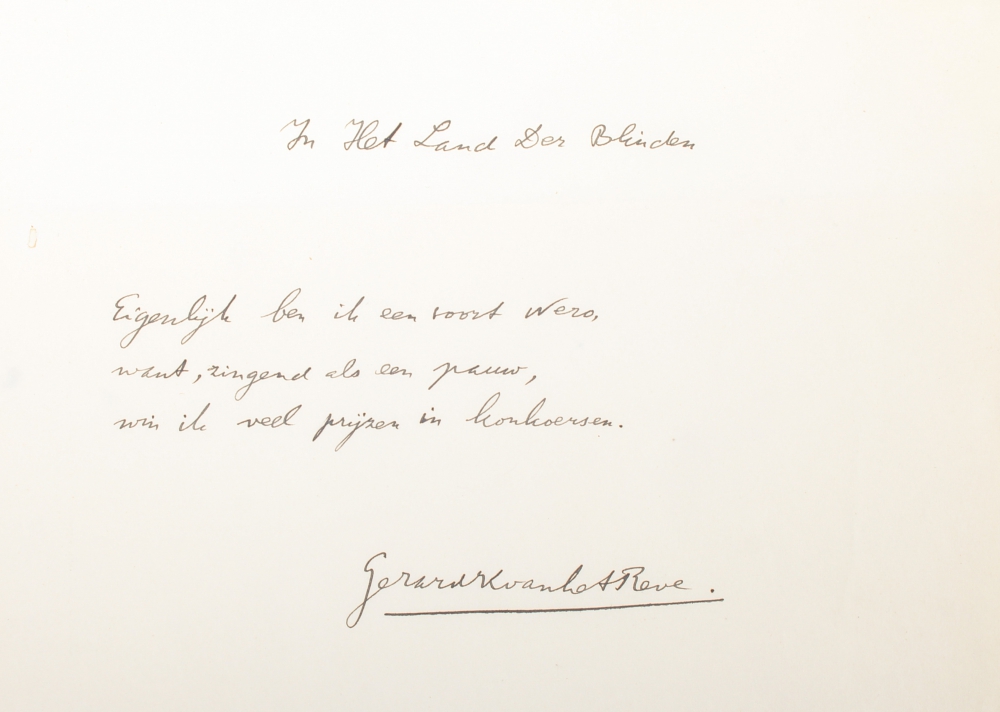 In Het Land Der Blinden
Eigenlijk ben ik een soort Nero,
want, zingend als een pauw,
win ik veel prijzen in konkoersen.
GerardKvanhetReve.